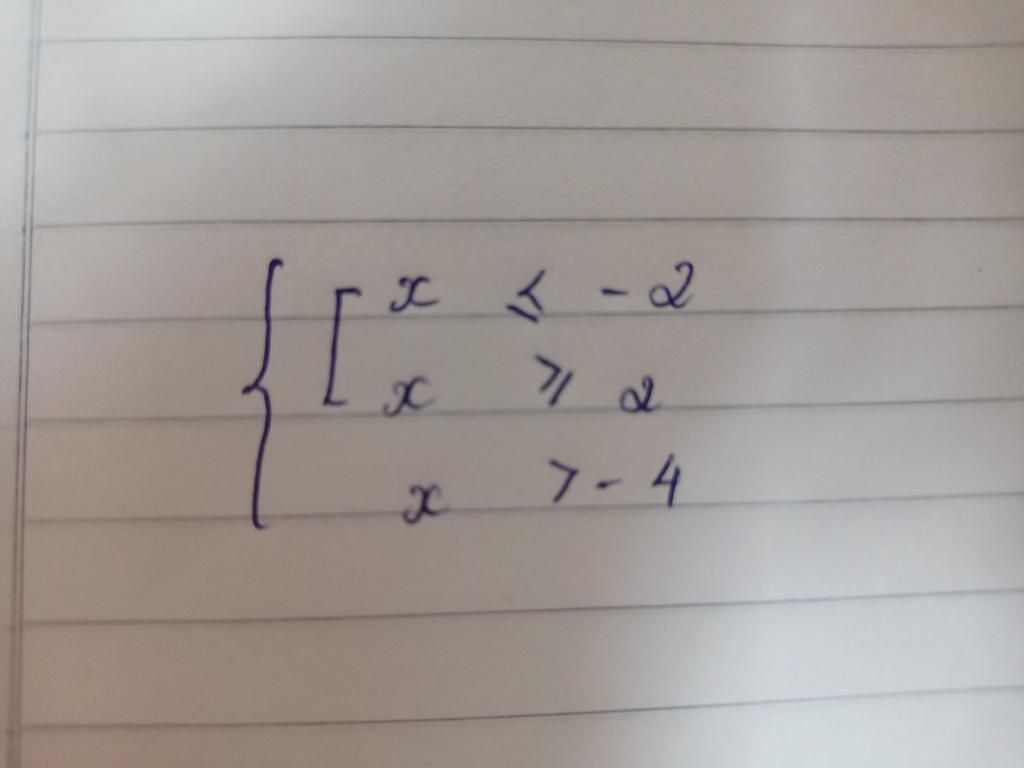 { [ x ≤ -2
x ≥ 2
x > -4